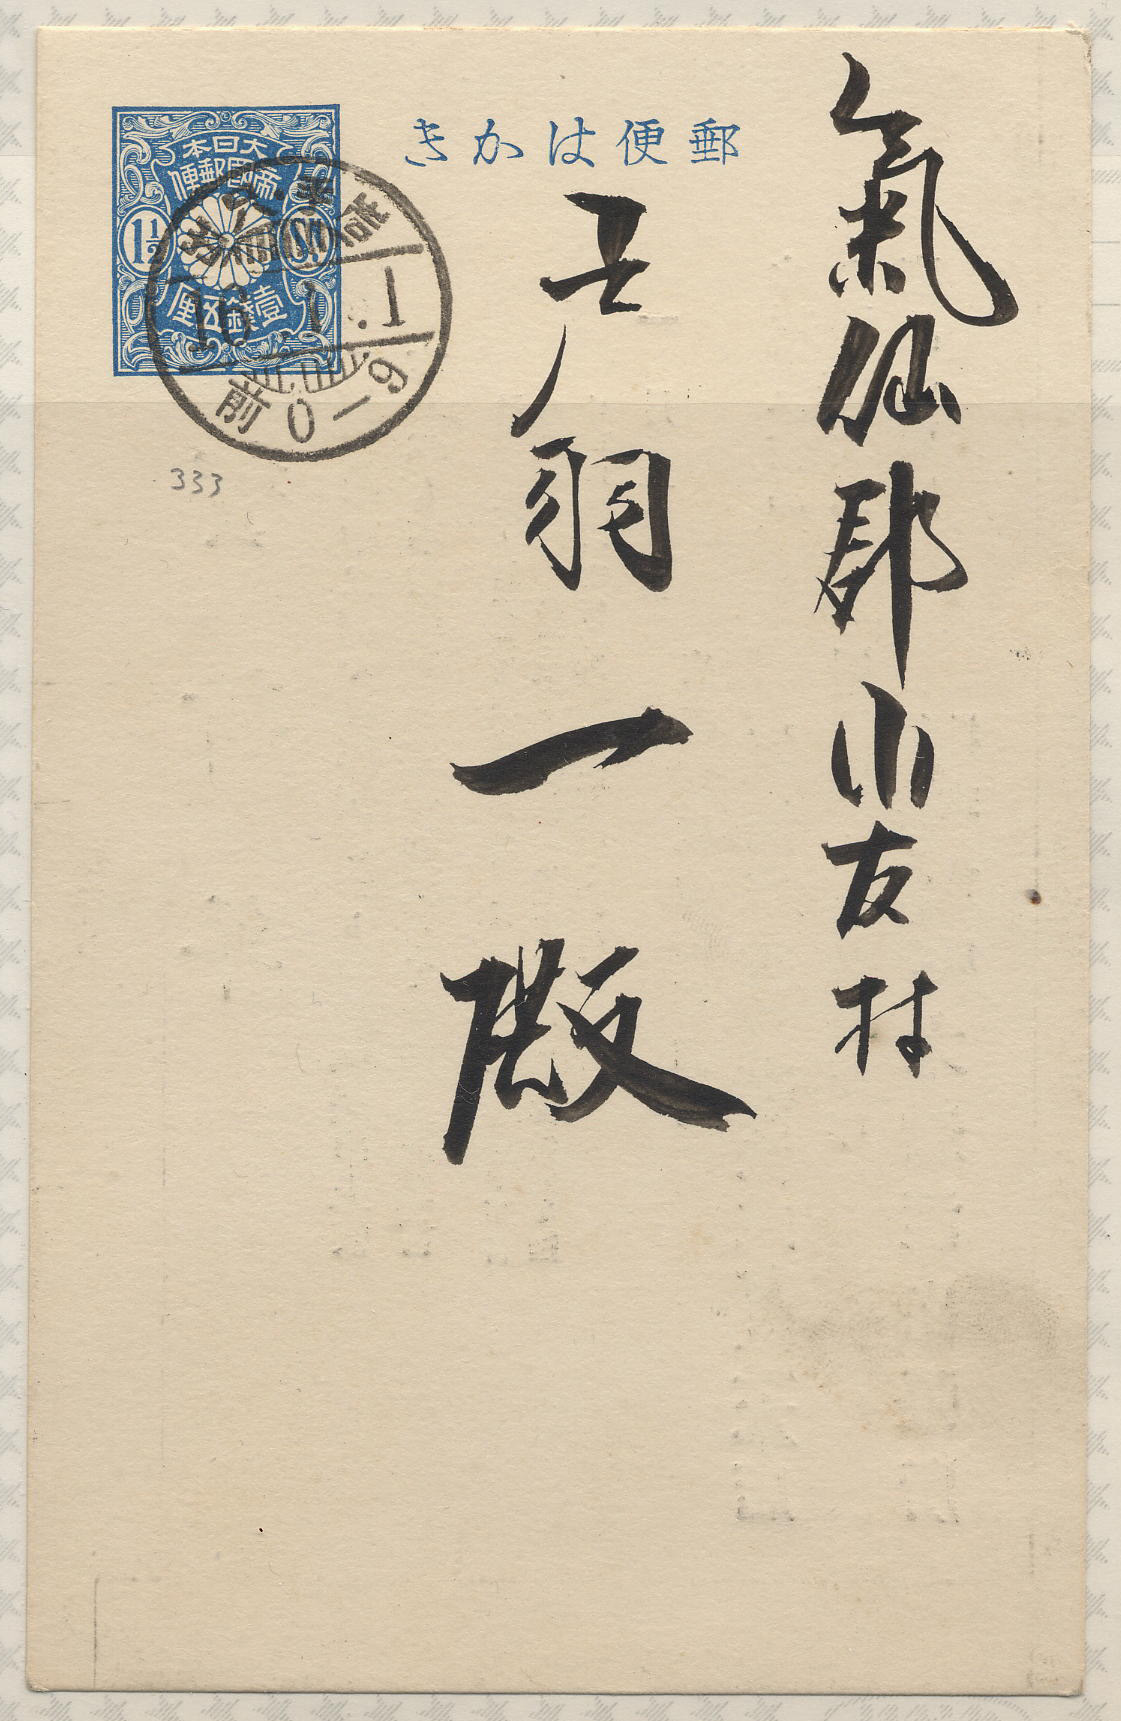 郵便はかき
大日本
帝國郵便
1½ Sn.
壹錢五厘
16.1.1
前0-9
333
氣仙郡小友村
戸羽一殿